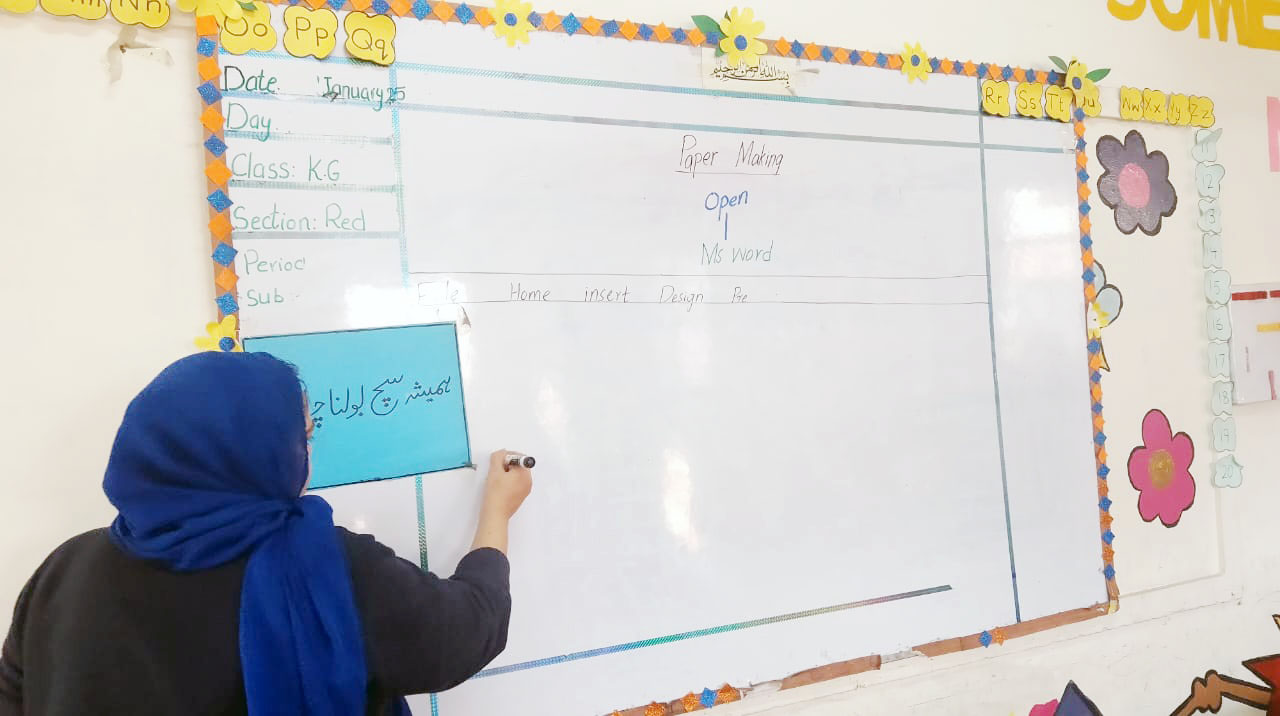 Nn
Oo Pp Qq
Rr Ss Tt Uu
Ww Xx Yy Zz
SOME
بسم اللہ الرحمن الرحیم
Date: January 25
Day
Class: K.G
Section: Red
Period
Sub
Paper Making
Open
Ms word
File Home insert Design Pre
ہمیشہ سچ بولنا
12
13
15
16
17
18
19
20